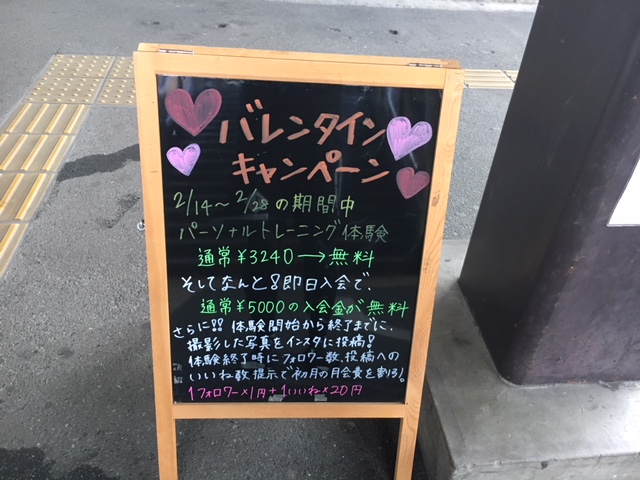 バレンタイン
キャンペーン
2/14〜2/28の期間中
パーソナルトレーニング体験
通常¥3240→無料
そしてなんと!即日入会で、
通常¥5000の入会金が無料
さらに!!体験開始から終了までに、
撮影した写真をインスタに投稿!
体験終了時にフォロワー数、投稿への
いいね数提示で初月の月会費を割引!
1フォロワー×1円+1いいね×20円